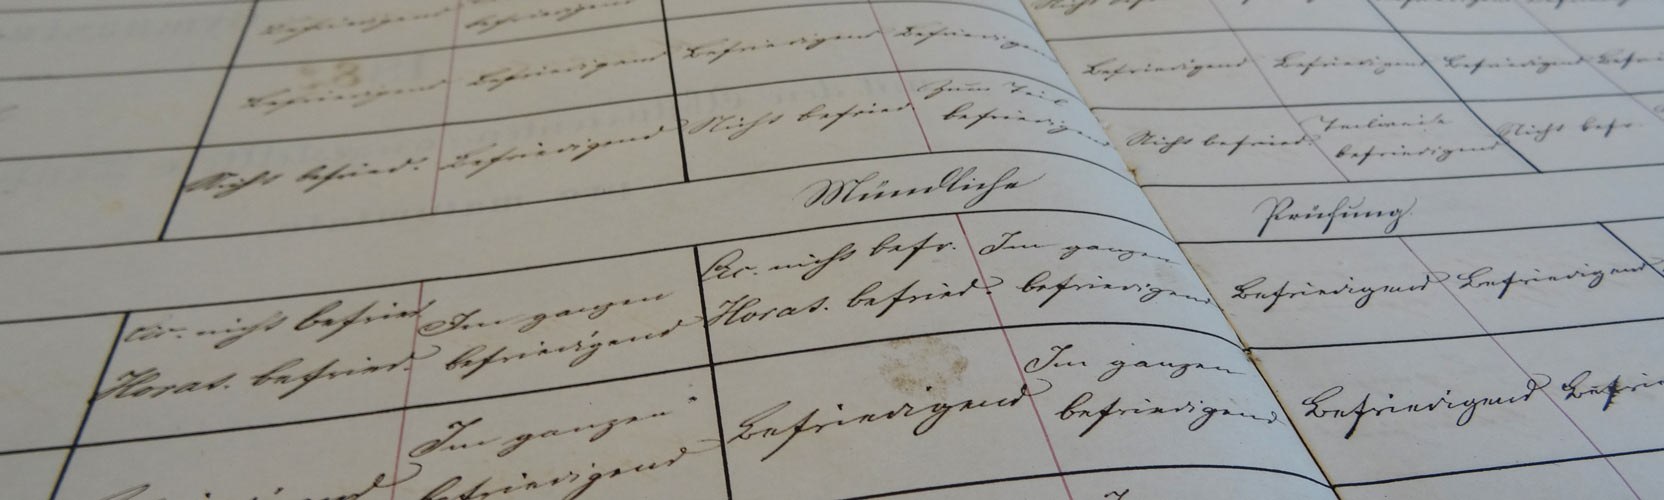 Befriedigend Befriedigend
Befriedigend Befriedigend Befriedigend Befriedigend Befriedigend Befriedigend Befriedigend
Nicht befried. Befriedigend Nicht befried. Zum Teil Nicht befried. Teilweise Nicht befr.
befriedigend befriedigend
Mündliche Prüfung
Cic. nicht befried. Im ganzen Cic. nicht befr. Im ganzen Befriedigend Befriedigend
Horat. befried. befriedigend Horat. befried. befriedigend
Im ganzen Befriedigend Im ganzen Befriedigend
befriedigend befriedigend